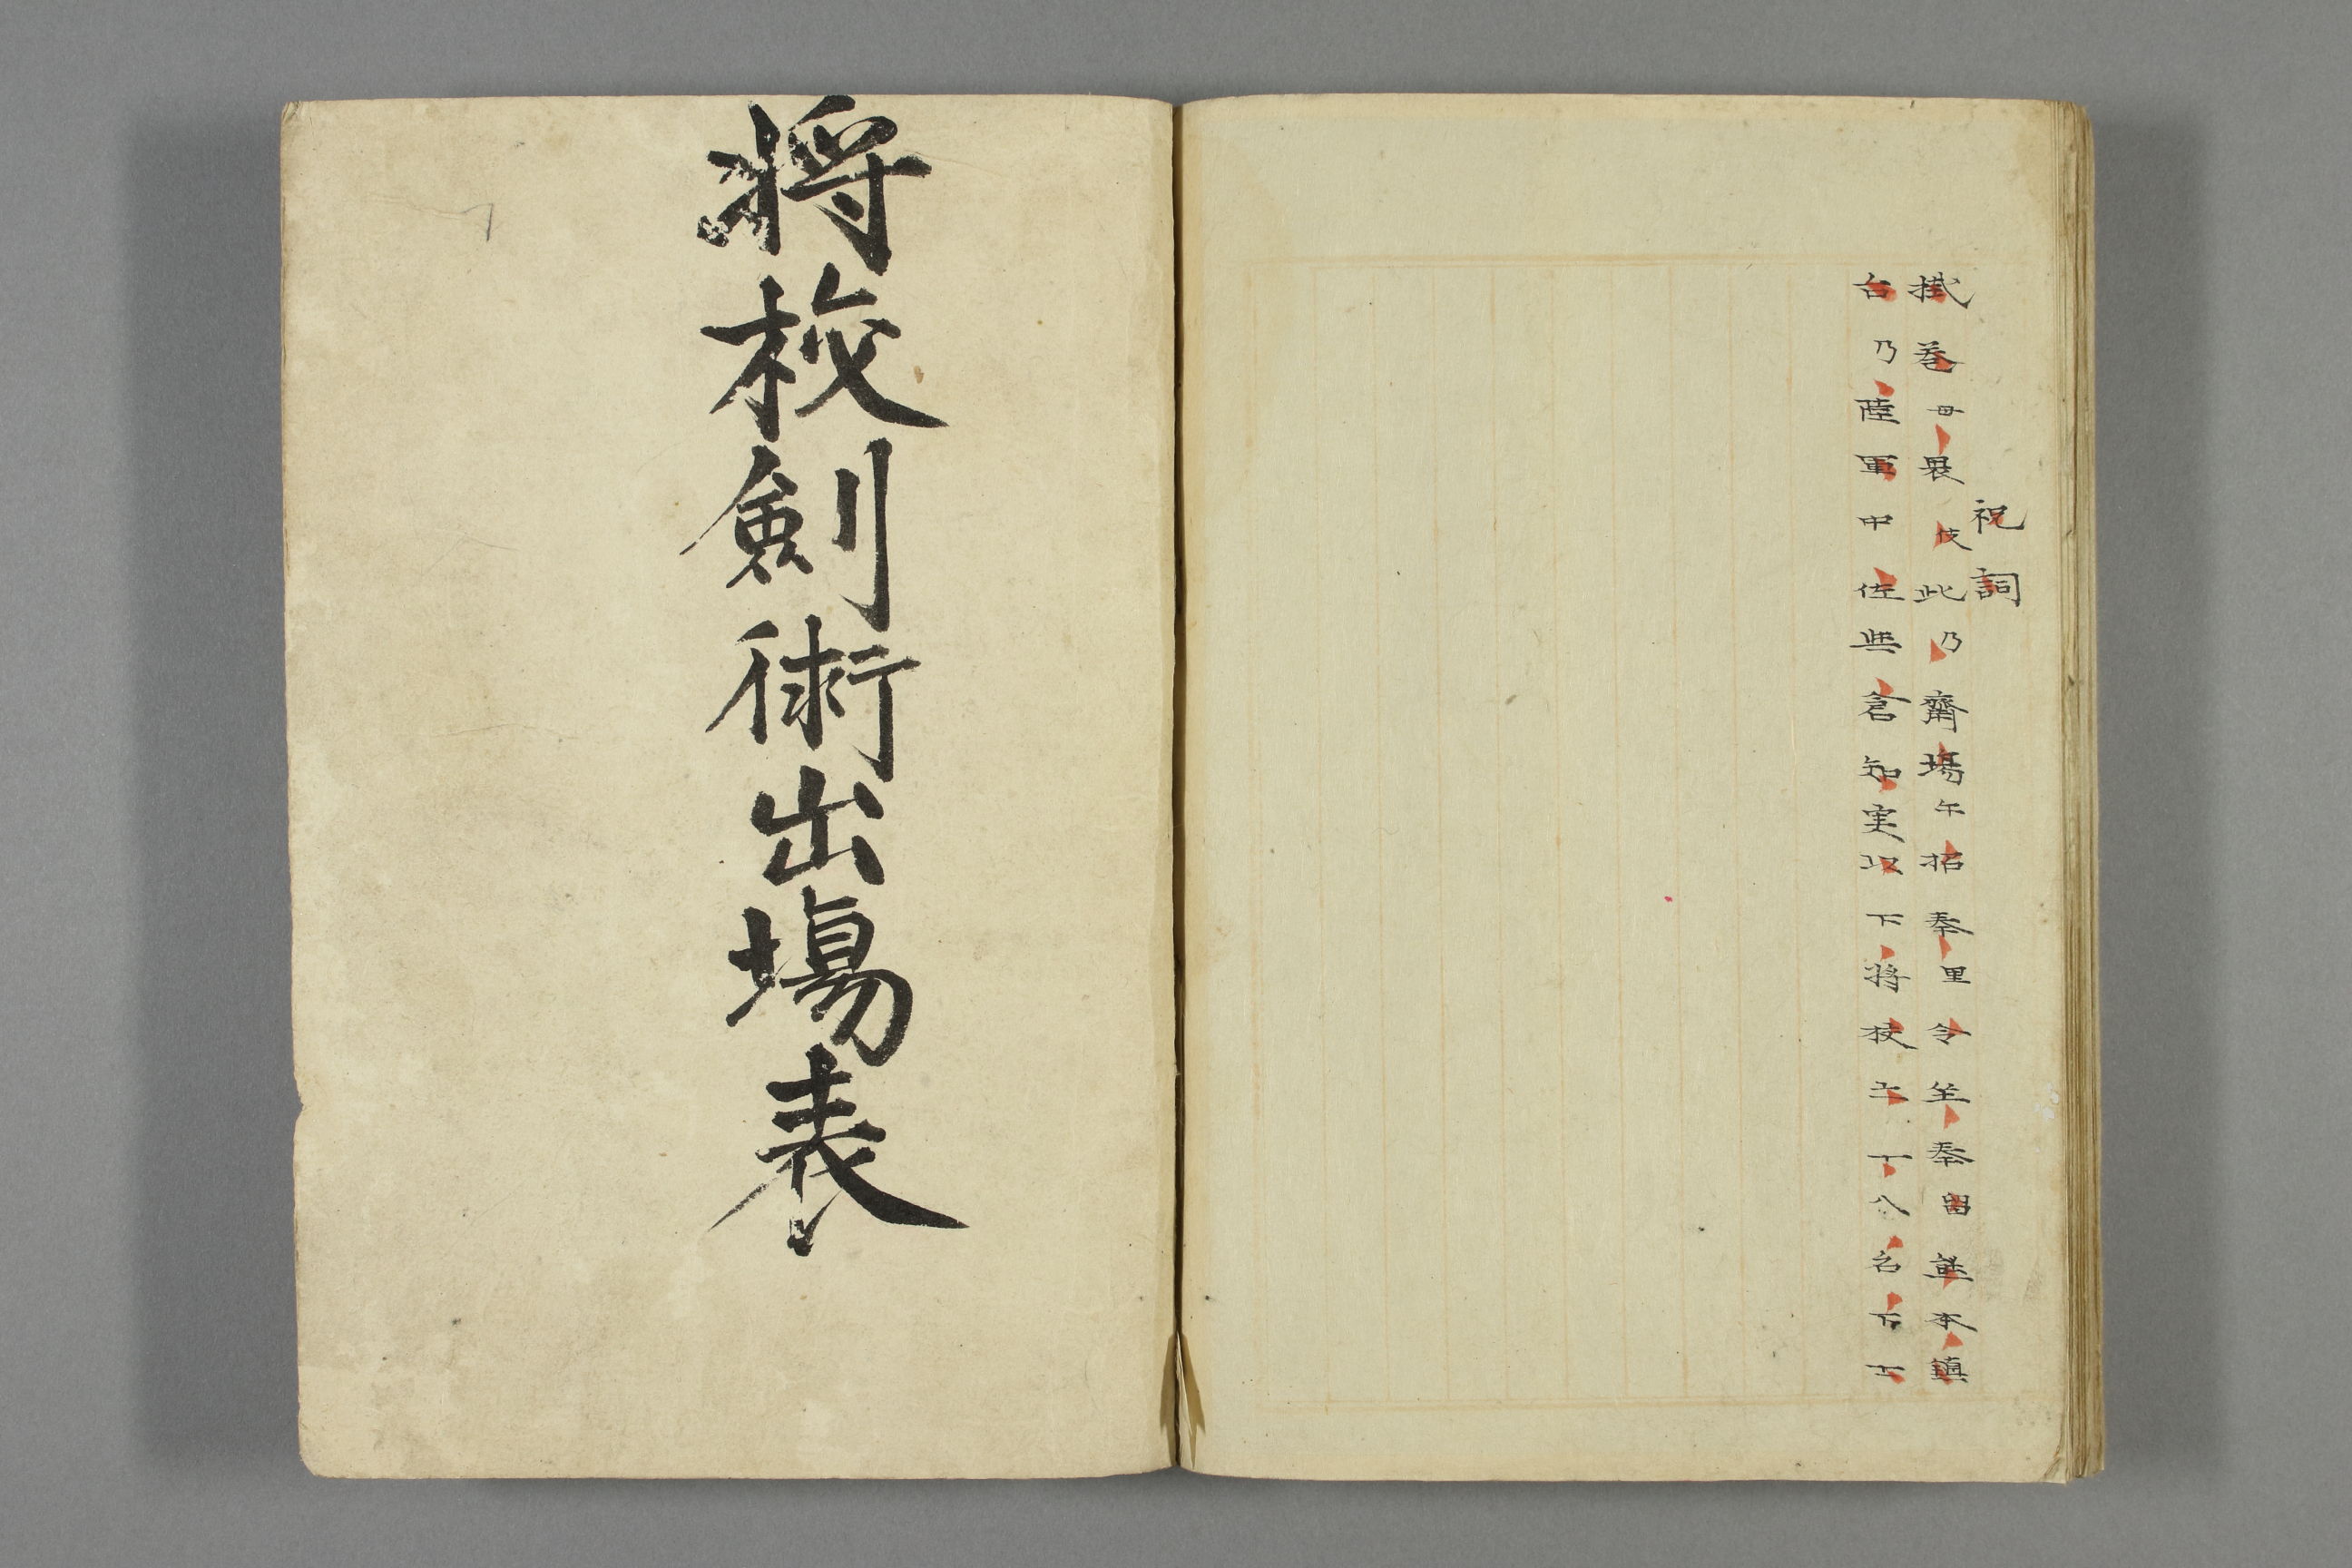 祝詞
掛巻母畏伎此乃齋場午招奉里令坐奉留熊本鎮
台乃陸軍中佐與倉知実以下将校二十八名下士
將校劍術出場表